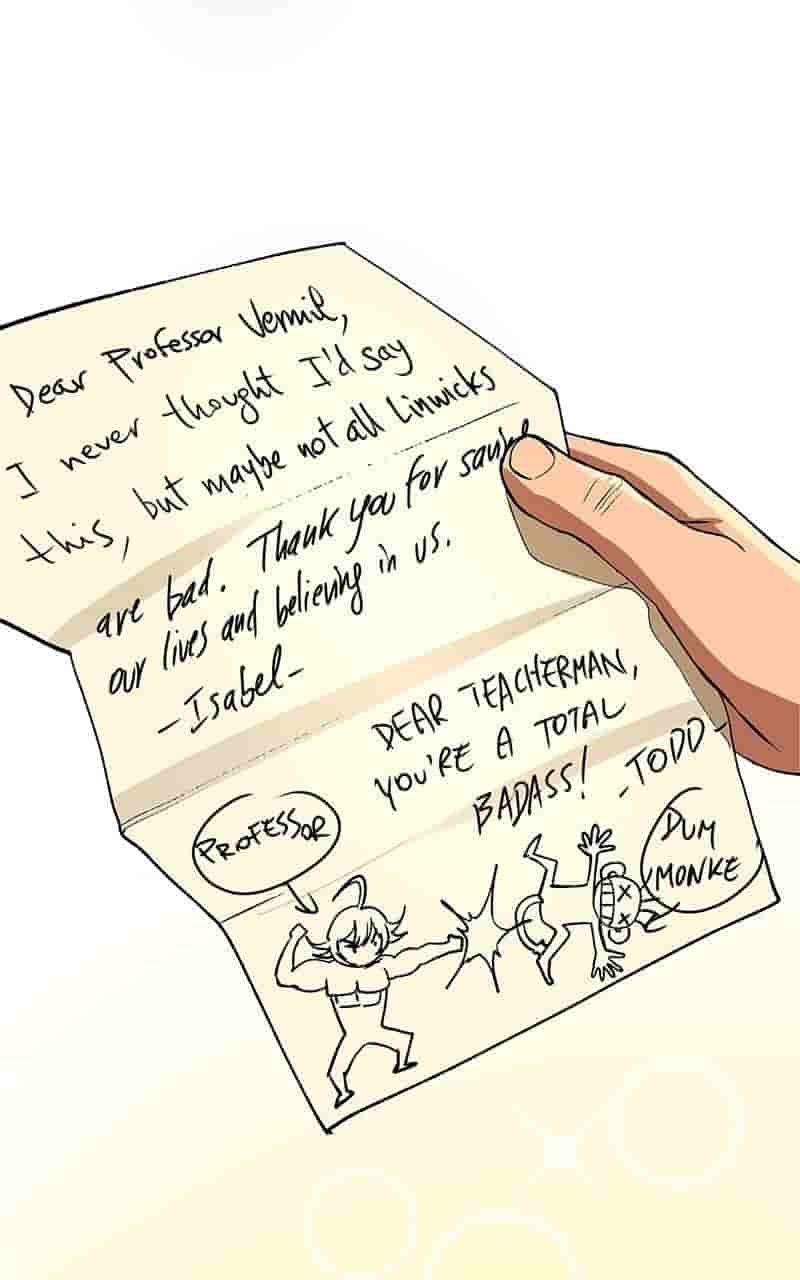 Dear Professor Vermil,
I never thought I'd say
this, but maybe not all Linwicks
are bad. Thank you for
our lives and believing in us.
-Isabel-
DEAR TEACHERMAN,
YOU'RE A TOTAL
BADASS! -TODD-
PROFESSOR
DUM
MONKE